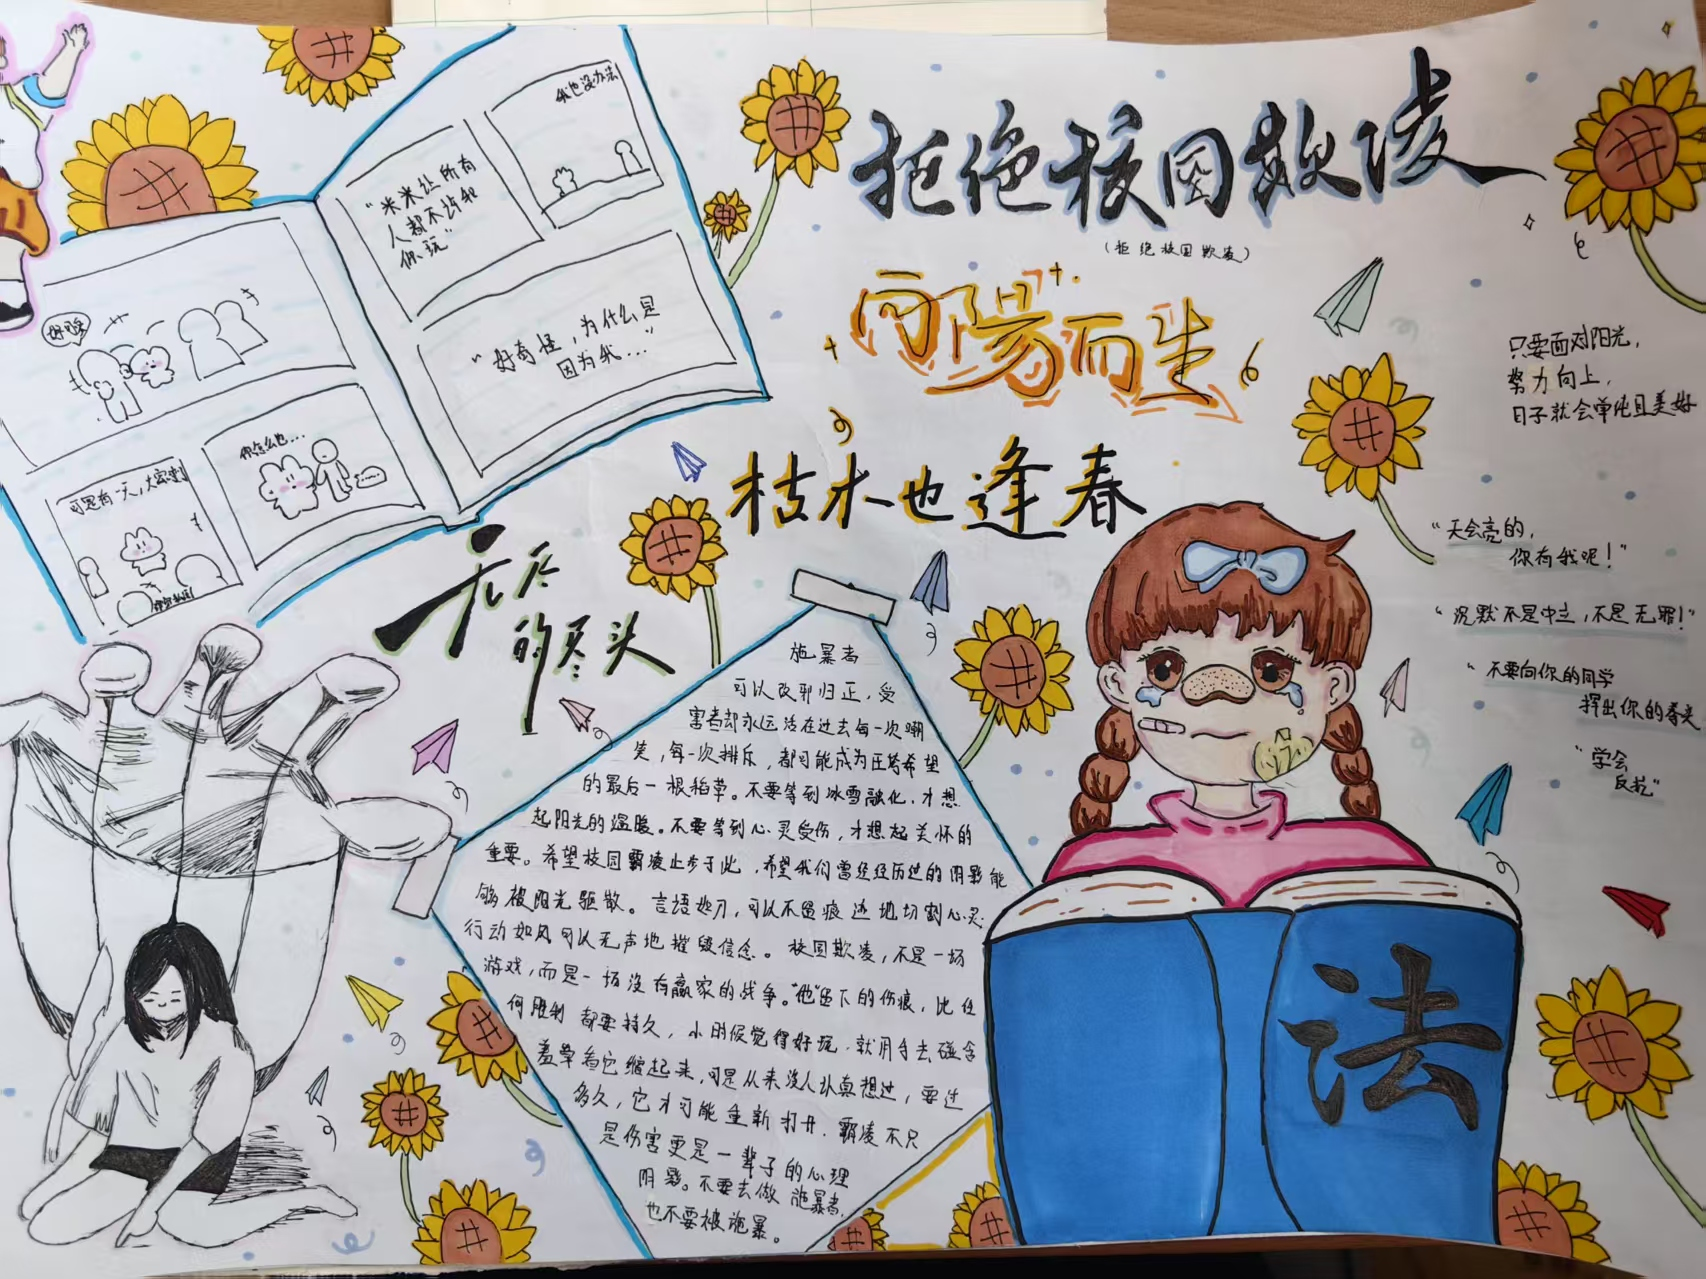 拒绝校园欺凌
(拒绝校园欺凌)
向陽而生
枯木也逢春
无尽
的尽头
我也没办法
"米米让所有
人都不许和
你玩"
"好奇怪，为什么是
因为我..."
好可爱
可是有一天，大家突然
你怎么也...
只要面对阳光，
努力向上，
日子就会单纯且美好
"天会亮的，
你有我呢！"
"沉默不是中立，不是无罪！"
"不要向你的同学
挥出你的拳头
"学会
反抗"
施暴者
可以改邪归正，受
害者却永远活在过去每一次嘲
笑，每一次排斥，都可能成为压垮希望
的最后一根稻草。不要等到冰雪融化，才想
起阳光的温暖。不要等到心灵受伤，才想起关怀的
重要。希望校园霸凌止步于此，希望我们曾经经历过的阴影能
够被阳光驱散。言语如刀，可以不留痕迹地切割心灵.
行动如风可以无声地摧毁信念。校园欺凌，不是一场
游戏，而是一场没有赢家的战争。"他"留下的伤痕，比任
何胜利都要持久，小时候觉得好玩，就用手去碰含
羞草看它缩起来，可是从来没人认真想过，要过
多久，它才可能重新打开，霸凌不只
是伤害更是一辈子的心理
阴影。不要去做施暴者，
也不要被施暴。
法